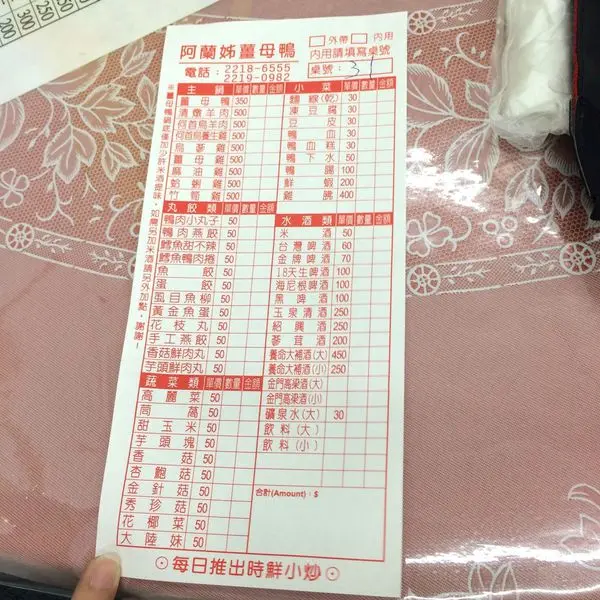 阿蘭姊薑母鴨
電話：2218-6555
2219-0982
□外帶 □內用
內用請填寫桌號
桌號：31
※薑母鴨鍋底僅加少許米酒提味，如需另加米酒請另外加點，謝謝！
主鍋 單價 數量 金額
薑母鴨 350
清燉羊肉 500
何首烏羊肉 500
何首烏養生雞 500
烏蔘雞 500
薑母雞 500
麻油雞 500
蛤蜊雞 500
竹笙雞 500
丸餃類 單價 數量 金額
鴨肉小丸子 50
鴨肉燕餃 50
鱈魚甜不辣 50
鱈魚鴨肉捲 50
魚餃 50
蛋餃 50
虱目魚柳 50
黃金魚蛋 50
花枝丸 50
手工燕餃 50
香菇鮮肉丸 50
芋頭鮮肉丸 50
蔬菜類 單價 數量 金額
高麗菜 50
茼蒿 50
甜玉米 50
芋頭塊 50
香菇 50
杏鮑菇 50
金針菇 50
秀珍菇 50
花椰菜 50
大陸妹 50
小菜 單價 數量 金額
麵線(乾) 30
凍豆腐 30
豆皮 30
鴨血 30
鴨血糕 30
鴨下水 50
鴨腸 100
鮮蝦 200
雞佛 400
水酒類 單價 數量 金額
米酒 50
台灣啤酒 60
金牌啤酒 70
18天生啤酒 100
海尼根啤酒 100
黑啤酒 100
玉泉清酒 250
紹興酒 250
蔘茸酒 200
養命大補酒(大) 450
養命大補酒(小) 250
金門高梁酒(大)
金門高梁酒(小)
礦泉水(大) 30
飲料(大)
飲料(小)
合計(Amount)：$
⊙每日推出時鮮小炒⊙
200
250
300
50